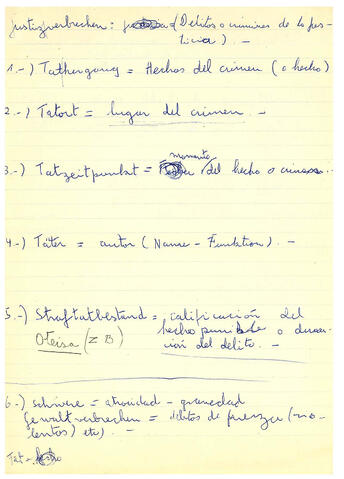 Justizverbrechen: = (Delitos o crimines de la jus-
ticia). -
1.-) Tathergang = Hechos del crimen (o hecho)
2.-) Tatort = lugar del crimen. -
momento
3.-) Tatzeitpunkt = del hecho o crimen.-
4.-) Täter = autor (Name - Funktion). -
5.-) Straftatbestand = calificación del
Oteisa (z B) hecho punible o
ción del delito. -
6.-) schwere = atrocidad - gravedad
Gewaltverbrechen = delitos de fuerza (vio-
lentos) etc) -
Tat =